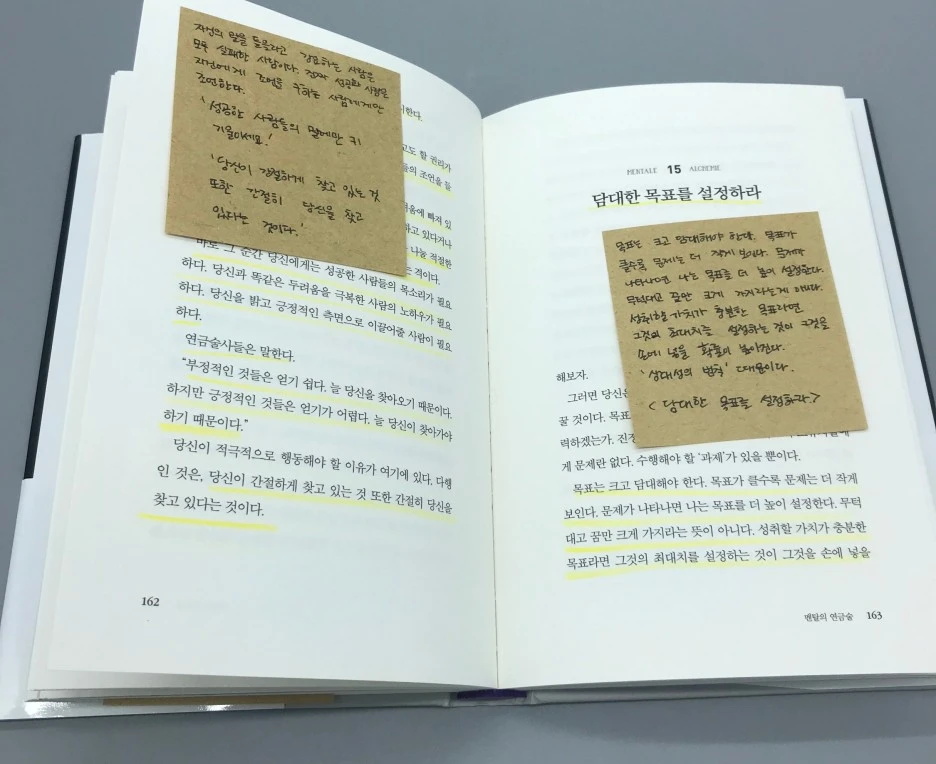 자신의 말을 들으라고 강요하는 사람은
모두 실패한 사람이다. 진짜 성공한 사람은
자신에게 조언을 구하는 사람에게만
조언한다.
'성공한 사람들의 말에만 귀
기울이세요!
'당신이 간절하게 찾고 있는 것
또한 간절히 당신을 찾고
있다는 것이다.'
한다.
고도 할 권리가
들의 조언을 들
려움에 빠져 있
하고 있다거나
나눌 적절한
는 적이다.
바로 그 순간 당신에게는 성공한 사람들의 목소리가 필요
하다. 당신과 똑같은 두려움을 극복한 사람의 노하우가 필요
하다. 당신을 밝고 긍정적인 측면으로 이끌어줄 사람이 필요
하다.
연금술사들은 말한다.
"부정적인 것들은 얻기 쉽다. 늘 당신을 찾아오기 때문이다.
하지만 긍정적인 것들은 얻기가 어렵다. 늘 당신이 찾아가야
하기 때문이다."
당신이 적극적으로 행동해야 할 이유가 여기에 있다. 다행
인 것은, 당신이 간절하게 찾고 있는 것 또한 간절히 당신을
찾고 있다는 것이다.
162
MENTALE 15 ALCHEMIE
담대한 목표를 설정하라
목표는 크고 담대해야 한다. 목표가
클수록 문제는 더 작게 보인다. 문제가
나타나면 나는 목표를 더 높이 설정한다.
무턱대고 꿈만 크게 가지라는게 아니다.
성취할 가치가 충분한 목표라면
그것의 최대치를 설정하는 것이 그것을
손에 넣을 확률이 높아진다.
'상대성의 법칙' 때문이다.
<담대한 목표를 설정하라>
해보자.
그러면 당신은
꿀 것이다. 목표
력하겠는가. 진정
게 문제란 없다. 수행해야 할 '과제'가 있을 뿐이다.
목표는 크고 담대해야 한다. 목표가 클수록 문제는 더 작게
보인다. 문제가 나타나면 나는 목표를 더 높이 설정한다. 무턱
대고 꿈만 크게 가지라는 뜻이 아니다. 성취할 가치가 충분한
목표라면 그것의 최대치를 설정하는 것이 그것을 손에 넣을
멘탈의 연금술 163